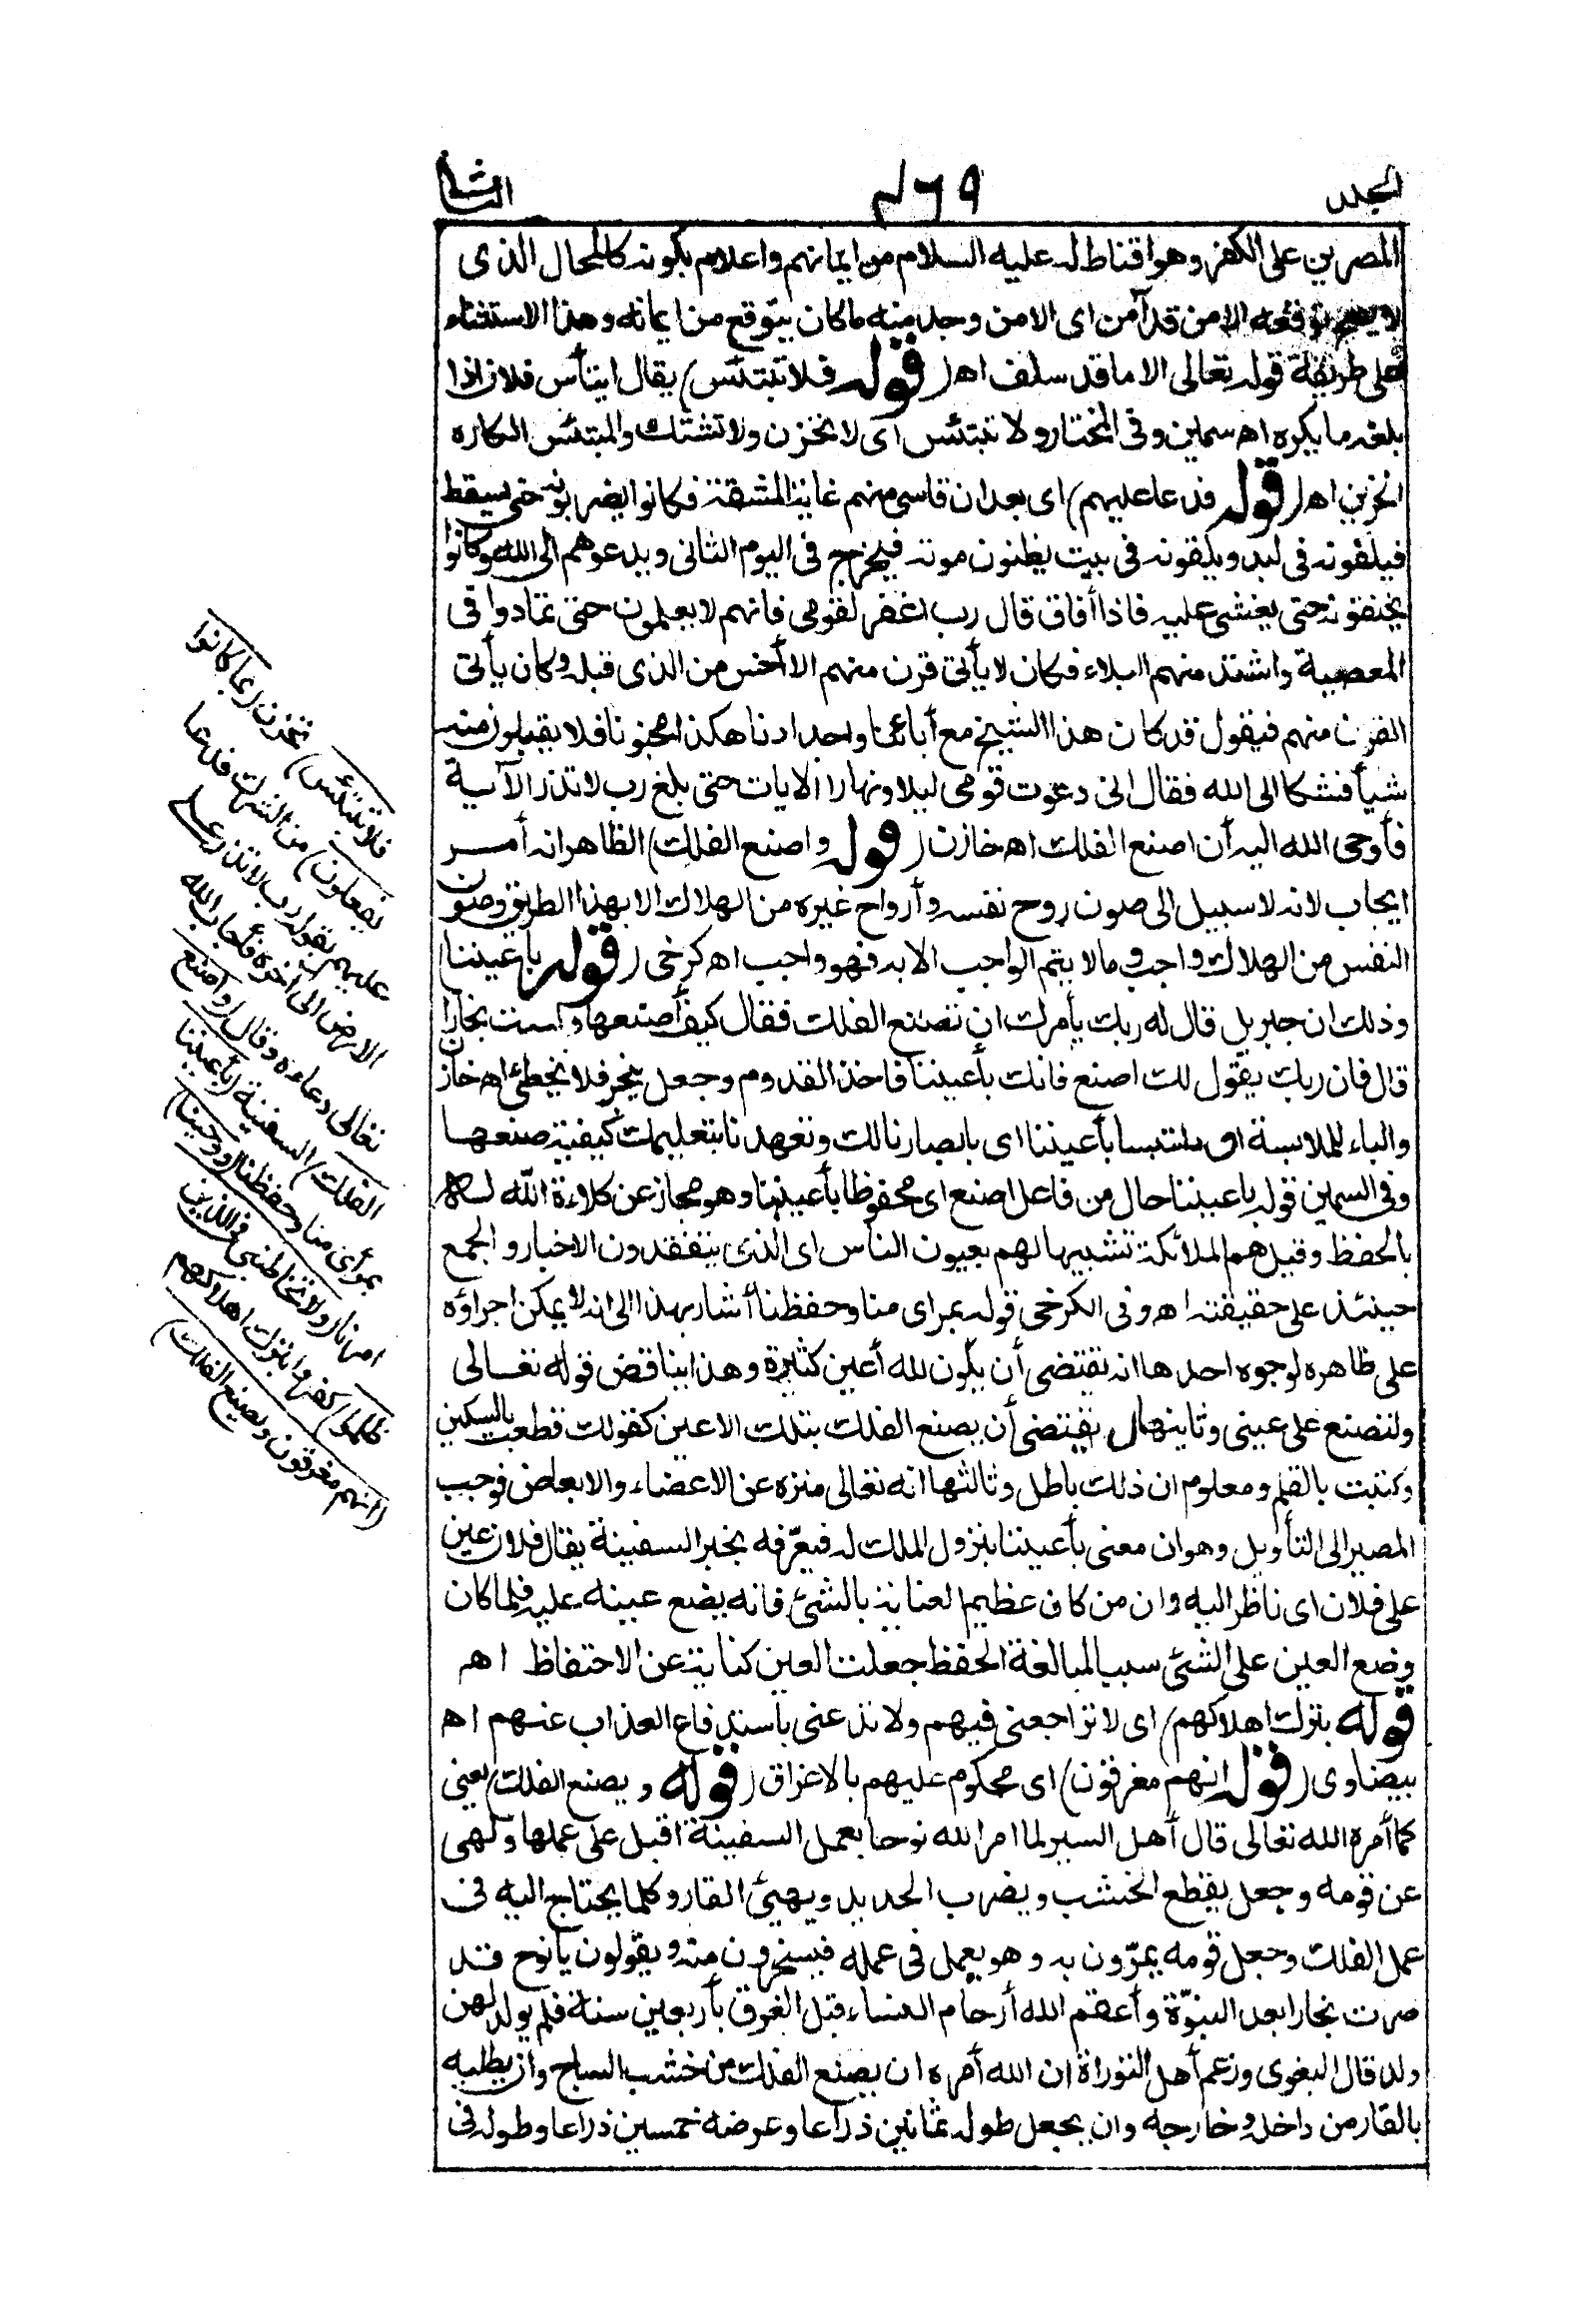 الجلد
٤٦٩
الثانى
المصرين على الكفر وهو اقناط له عليه السلام من ايمانهم واعلام بكونه كالمحال الذى
لا يصح توقعه الا من قد آمن اى الا من وجد منه ما كان يتوقع من ايمانه وهذا الاستثناء
على طريقة قوله تعالى الا ما قد سلف اه (قوله فلا تبتئس) يقال ابتأس فلان اذا
بلغه ما يكره اه سمين وفى المختار ولا تبتئس اى لا تحزن ولا تشتك والمبتئس الكاره
الحزين اه (قوله فدعا عليهم) اى بعد ان قاسى منهم غاية المشقة فكانوا يضربونه حتى يسقط
فيلفونه فى لبد ويلقونه فى بيت يظنون موته فيخرج فى اليوم الثانى ويدعوهم الى الله وكانوا
يخنقونه حتى يغشى عليه فاذا أفاق قال رب اغفر لقومى فانهم لا يعلمون حتى تمادوا فى
المعصية واشتد منهم البلاء فكان لا يأتى قرن منهم الا أخس من الذى قبله وكان يأتى
القرن منهم فيقول قد كان هذا الشيخ مع أبائنا واجدادنا هكذا مجنونا فلا يقبلون منه
شيأ فشكا الى الله فقال انى دعوت قومى ليلا ونهارا الايات حتى بلغ رب لا تذر الآية
فأوحى الله اليه أن اصنع الفلك اه خازن (قوله واصنع الفلك) الظاهر انه أمر
ايجاب لانه لا سبيل الى صون روح نفسه وأرواح غيره من الهلاك الا بهذا الطريق وصون
النفس من الهلاك واجب وما لا يتم الواجب الا به فهو واجب اه كرخى (قوله بأعيننا)
وذلك ان جبريل قال له ربك يأمرك ان تصنع الفلك فقال كيف أصنعها ولست نجارا
قال فان ربك يقول لك اصنع فانك بأعيننا فاخذ القدوم وجعل ينجر فلا يخطئ اه خازن
والباء للملابسة اى ملتبسا بأعيننا اى بابصارنا لك وتعهدنا بتعليمك كيفية صنعها
وفى السمين قوله باعيننا حال من فاعل اصنع اى محفوظا بأعيننا وهو مجاز عن كلاءة الله له
بالحفظ وقيل هم الملائكة تشبيها لهم بعيون الناس اى الذى يتفقدون الاخبار والجمع
حينئذ على حقيقته اه وفى الكرخى قوله بمراى منا وحفظنا أشار بهذا الى انه لا يمكن اجراؤه
على ظاهره لوجوه احدها انه يقتضى أن يكون لله أعين كثيرة وهذا يناقض قوله تعالى
ولتصنع على عينى وثانيها يقتضى أن يصنع الفلك بتلك الاعين كقولك قطعت بالسكين
وكتبت بالقلم ومعلوم ان ذلك باطل وثالثها انه تعالى منزه عن الاعضاء والابعاض فوجب
المصير الى التأويل وهو ان معنى بأعيننا بنزول الملك له فيعرّفه بخبر السفينة يقال فلان عين
على فلان اى ناظر اليه وان من كان عظيم العناية بالشئ فانه يضع عينه عليه فلما كان
وضع العين على الشئ سببا لمبالغة الحفظ جعلت العين كناية عن الاحتفاظ اه
قوله بترك اهلاكهم) اى لا تراجعنى فيهم ولا تدعنى باستدفاع العذاب عنهم اه
بيضاوى (قوله انهم مغرقون) اى محكوم عليهم بالاغراق (قوله ويصنع الفلك) يعنى
كما أمره الله تعالى قال أهل السير لما امر الله نوحا بعمل السفينة اقبل على عملها ولهى
عن قومه وجعل يقطع الخشب ويضرب الحديد ويهيئ القار وكلما يحتاج اليه فى
عمل الفلك وجعل قومه يمرّون به وهو يعمل فى عمله فيسخرون منه ويقولون يا نوح قد
صرت نجارا بعد النبوّة وأعقم الله أرحام النساء قبل الغرق بأربعين سنة فلم يولد لهن
ولد قال البغوى وزعم أهل التوراة ان الله أمره ان يصنع الفلك من خشب الساج وان يطليه
بالقار من داخله وخارجه وان يجعل طوله ثمانين ذراعا وعرضه خمسين ذراعا وطوله فى
فلا تبتئس) تحزن (بما كانوا
يفعلون) من الشرك فدعا
عليهم بقوله رب لا تذر على
الارض الى آخره فأجاب الله
تعالى دعاءه وقال (واصنع
الفلك) السفينة (بأعيننا
بمرأى منا وحفظنا (ووحينا)
امرنا (ولا تخاطبنى فى الذين
ظلموا) كفروا بترك اهلاكهم
(انهم مغرقون ويصنع الفلك)